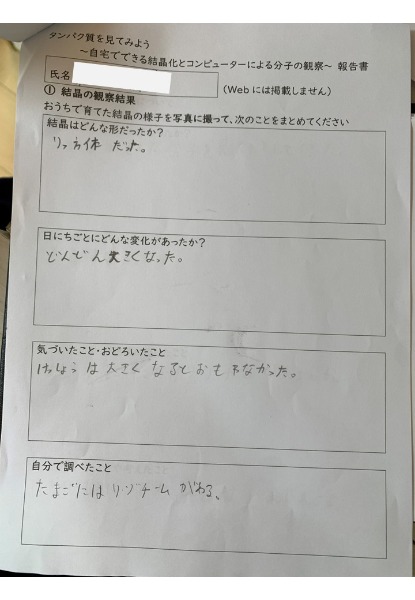 タンパク質を見てみよう
～自宅でできる結晶化とコンピューターによる分子の観察～ 報告書
氏名
(Webには掲載しません)
① 結晶の観察結果
おうちで育てた結晶の様子を写真に撮って、次のことをまとめてください
結晶はどんな形だったか?
りっ方体 だった。
日にちごとにどんな変化があったか?
どんどん大きくなった。
気づいたこと・おどろいたこと
けっしょうは大きくなるとおもわなかった。
自分で調べたこと
たまごにはリゾチームが